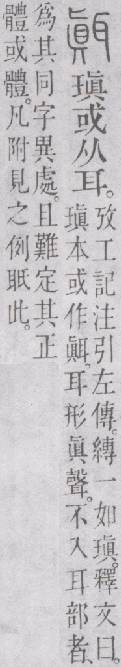 䏁瑱或从耳。
攷工記注引左傳。縳一如瑱。釋文曰。
瑱本或作䏁。耳形眞聲。不入耳部者、
爲其同字異處。且難定其正
體或體。凡附見之例眂此。